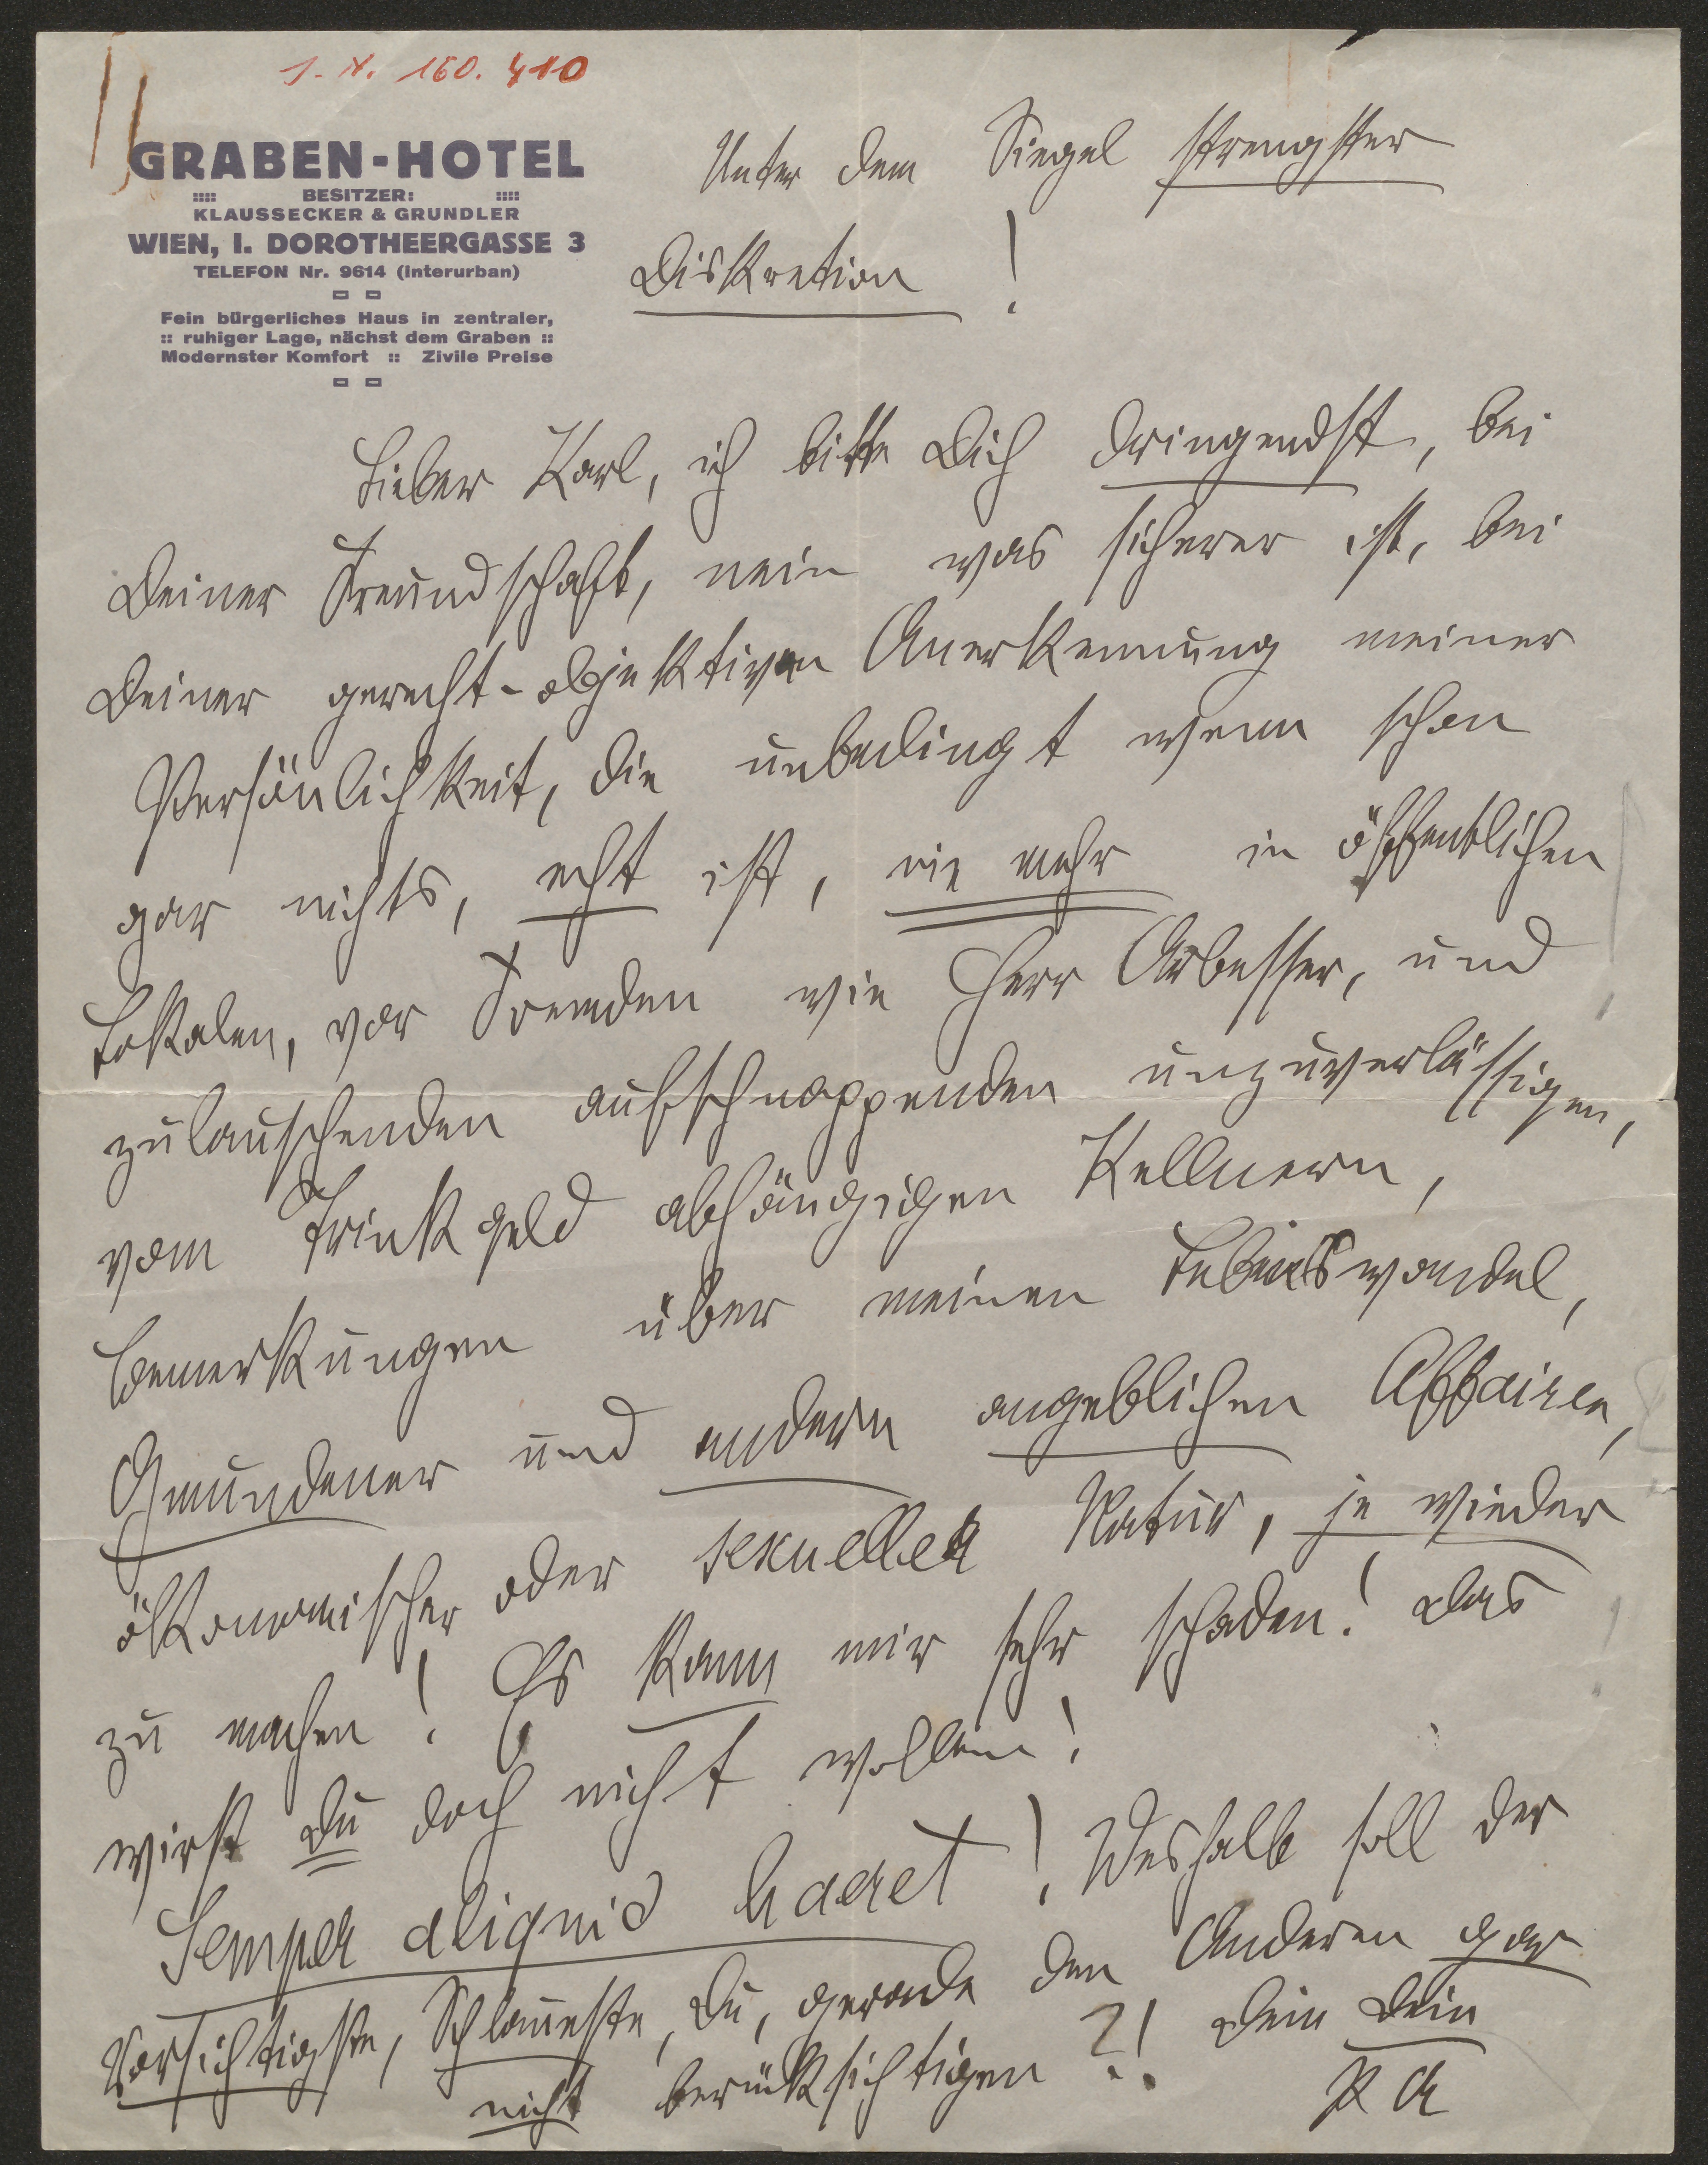 J. N. 160.410
GRABEN-HOTEL
:::: BESITZER: ::::
KLAUSSECKER & GRUNDLER
WIEN, I. DOROTHEERGASSE 3
TELEFON Nr. 9614 (interurban)
Fein bürgerliches Haus in zentraler,
:: ruhiger Lage, nächst dem Graben ::
Modernster Komfort :: Zivile Preise
Unter dem Siegel strengster
Diskretion !
Lieber Karl, ich bitte Dich dringendst, bei
Deiner Freundschaft, nein was sicherer ist, bei
Deiner gerecht-objektiven Anerkennung meiner
Persönlichkeit, die unbedingt wenn schon
gar nichts, echt ist, nie mehr in öffentlichen
Lokalen, vor Fremden wie Herr Arbesser, und
zulauschenden aufschnappenden unzuverlässigen,
vom Trinkgeld abhängigen Kellnern,
Bemerkungen über meinen Lebenswandel,
Gmundener und andern angeblichen Affairen,
ökonomischer oder sexueller Natur, je wieder
zu machen! Es kann mir sehr schaden! Das
wirst Du doch nicht wollen!
Semper aliquid haeret! Weshalb soll der
Vorsichtigste, Schlaueste, Du, gerade den Anderen gar
nicht berücksichtigen?! Dein Dein
PA